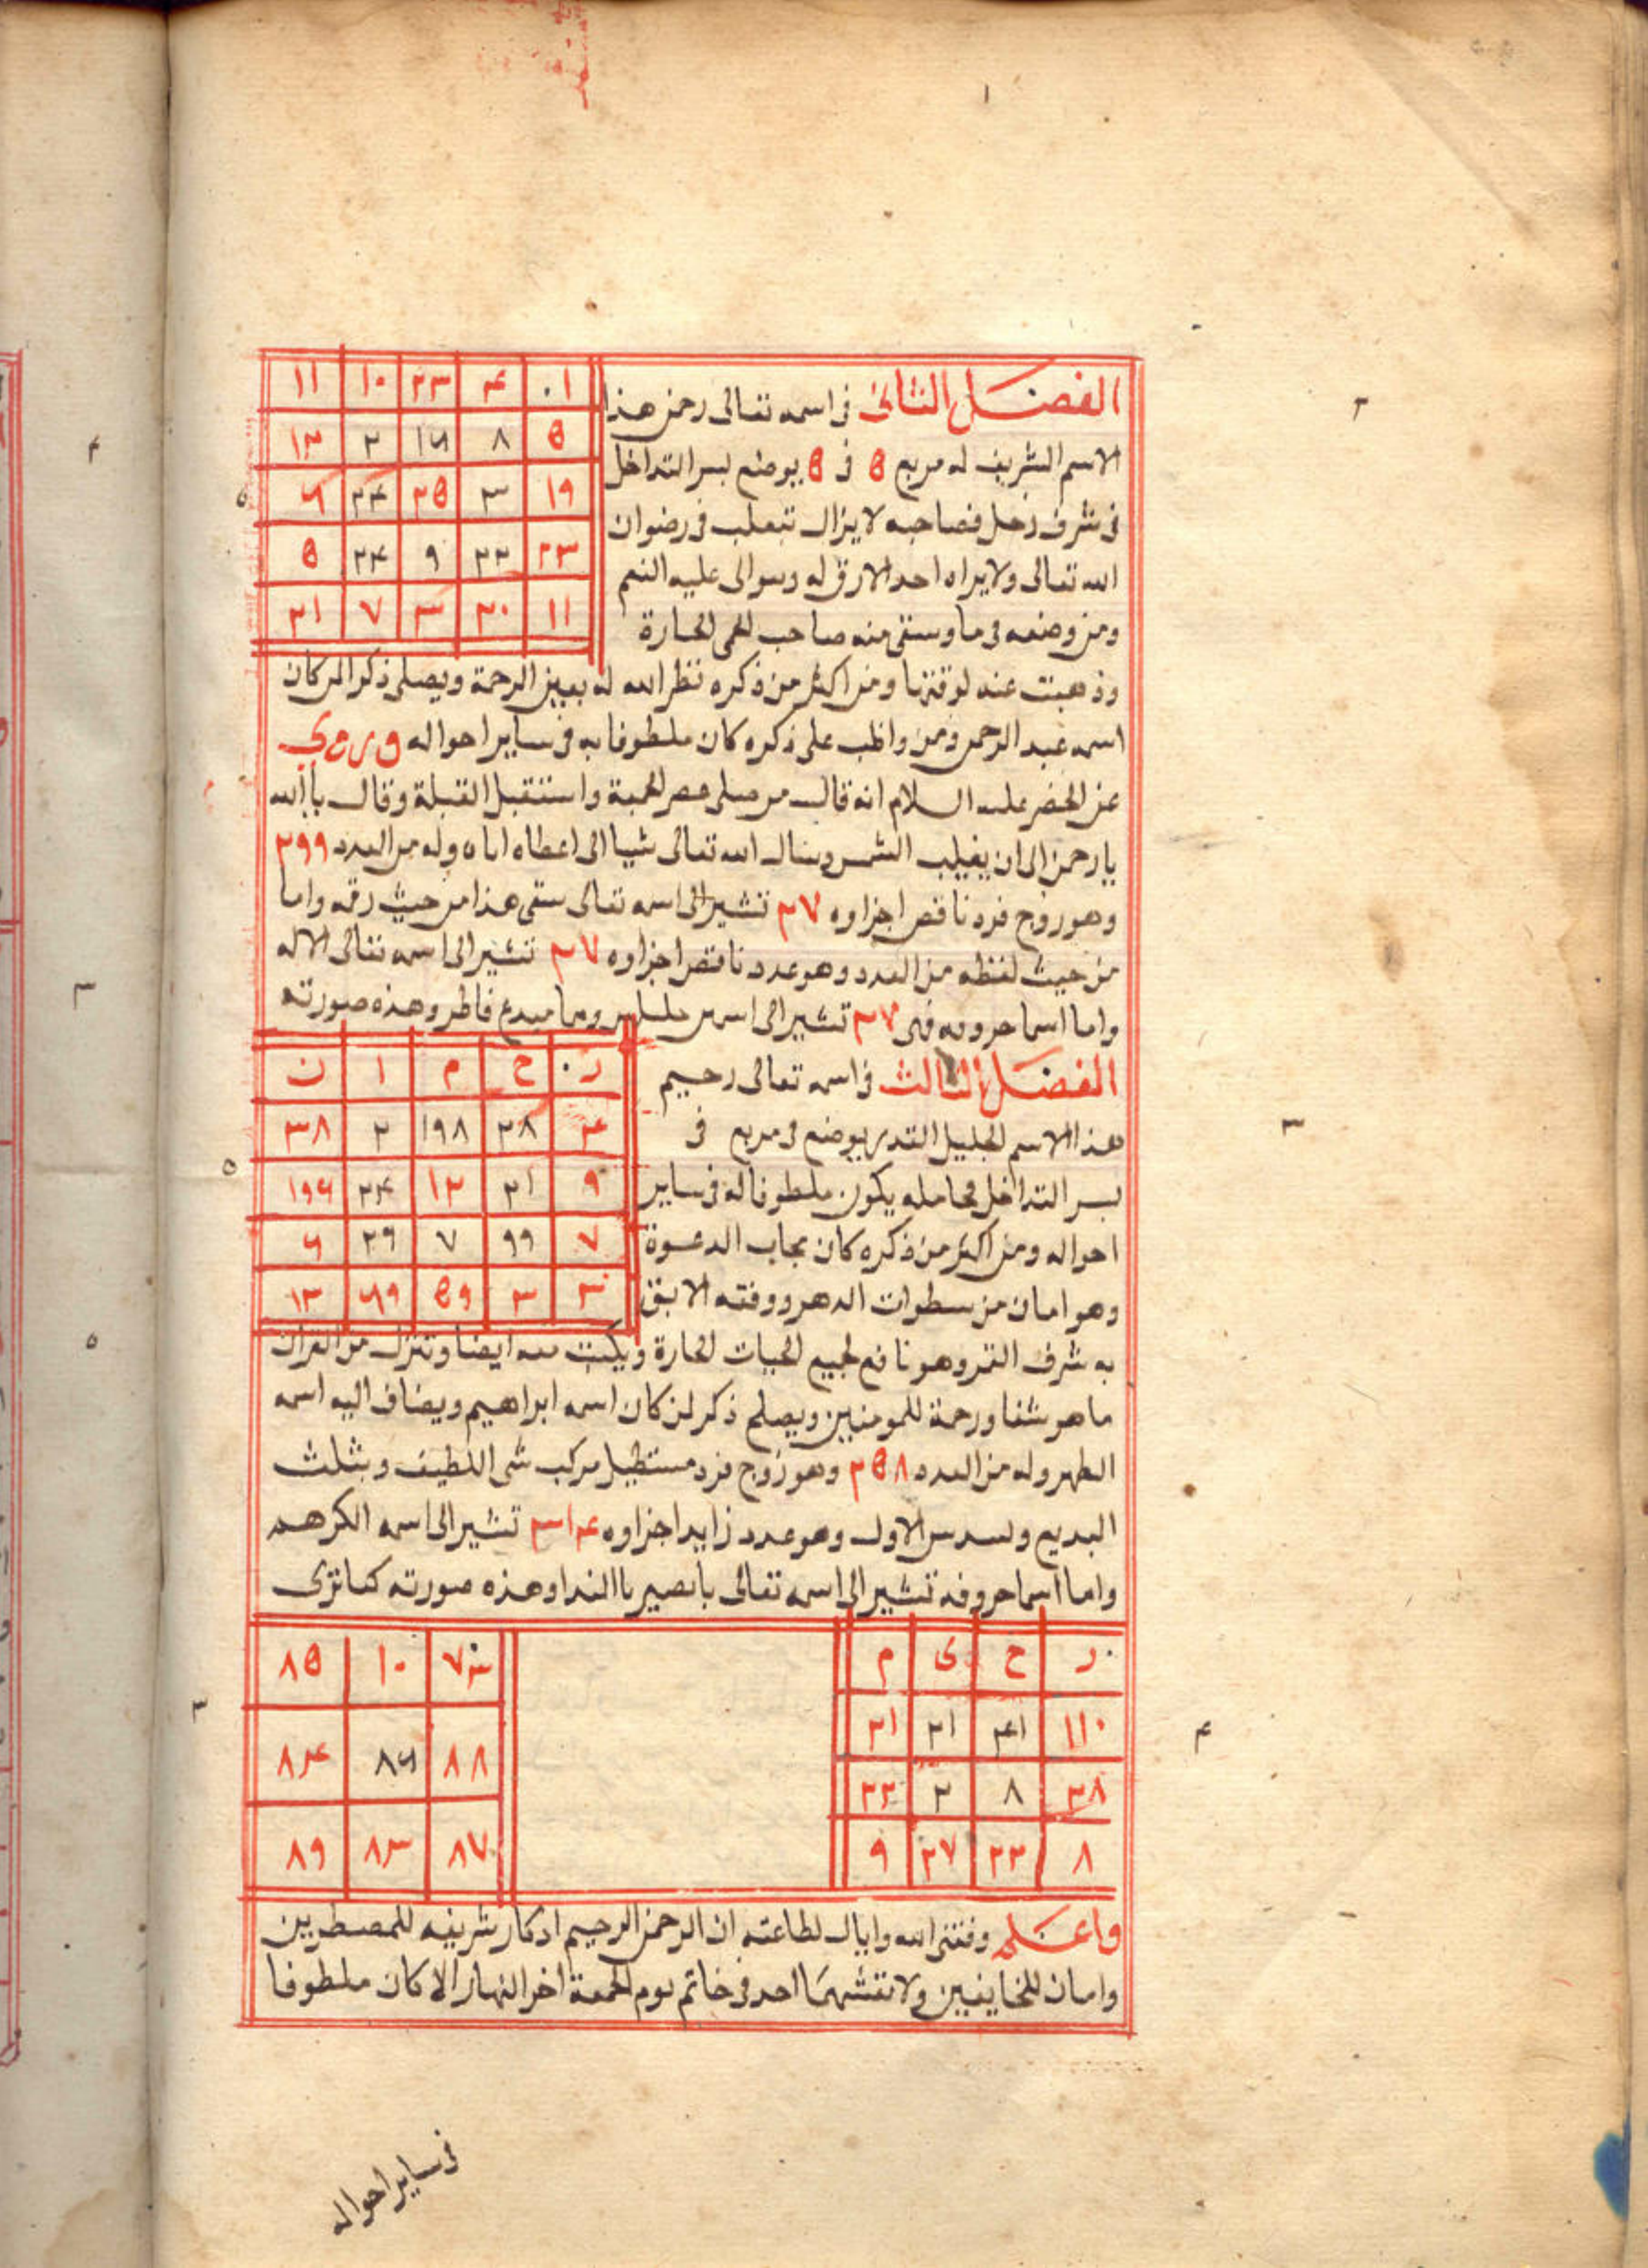 الفصل الثانى فى اسمه تعالى رحمن هذا
الاسم الشريف له مربع ٥ فى ٥ يوضع بسر التداخل
فى شرف زحل فصاحبه لا يزال تتعلب فى رضوان
الله تعالى ولا يراه احد الارق له وسوالى عليه النعم
ومن وضعه فى ما وسقى منه صاحب الحمى الحارة
وذهبت عنه لوقتها ومن اكثر من ذكره نظر الله له بعين الرحمة ويصلح ذكرا لمن كان
اسمه عبد الرحمن ومن واظب على ذكره كان ملطوفا به فى ساير احواله وروى
عن الخضر عليه السلام انه قال من صلى عصر الجمعة واستقبل القبلة وقال ياالله
يارحمن الى ان يغيب الشمس وسال الله تعالى شيا الى اعطاه اياه وله من العدد ٢٩٩
وهو زوج فرد ناقص اجزاوه ٢٧ تشير الى اسمه تعالى هذا من حيث رقمه واما
من حيث لفظه من العدد وهو عدد ناقص اجزاوه ٢٧ تشير الى اسمه تعالى الاله
واما اسما حروفه فهى ٢٧ تشير الى اسمين جليلين وهما مبدع فاطر وهذه صورته
١ ٤ ٢٣ ١٠ ١١
٥ ٨ ١٦ ٢ ١٣
١٩ ٣ ٢٥ ٢٤ ٦
٢٣ ٢٢ ٩ ٢٤ ٥
١١ ٢٠ ٣ ٧ ٢١
الفصل الثالث فى اسمه تعالى رحيم
هذا الاسم الجليل القدر يوضع فى مربع فى
بسر التداخل فحامله يكون ملطوفا له فى ساير
احواله ومن اكثر من ذكره كان مجاب الدعوة
وهو امان من سطوات الدهر ووفقه الابق
به شرف القمر وهو نافع لجميع الحيات الحارة ويكتب معه ايضا وننزل من القران
ما هو شفا ورحمة للمومنين ويصلح ذكر لمن كان اسمه ابراهيم ويضاف اليه اسمه
الطهر وله من العدد ٢٥٨ وهو زوج فرد مستطيل مركب اللطيف وبثلث
البديع ولسدس الاول وهو عدد زايد اجزاوه ٣١٤ تشير الى اسمه الكرهم
واما اسما حروفه تشير الى اسمه تعالى يانصير ياالندا وهذه صورته كما ترى
ر ح م ا ن
٤ ٢٨ ١٩٨ ٢ ٣٨
٩ ٢١ ١٢ ٢٤ ١٩٦
٧ ٩٩ ٧ ٢٩ ٦
٣ ٣ ٥٩ ٦٩ ١٣
ر ح ى م
١١٠ ٤١ ٢١ ٢١
٣٨ ٨ ٢ ٢٢
٨ ٢٢ ٢٧ ٩
٧٣ ١٠ ٨٥
٨٨ ٨٦ ٨٤
٨٧ ٨٣ ٨٩
واعلم وفقنى الله واياك لطاعته ان الرحمن الرحيم اذكار شريفه للمضطرين
وامان للخايفين ولا نقشهما احد فى خاتم يوم الجمعة اخر النهار الا كان ملطوفا
فى ساير احواله